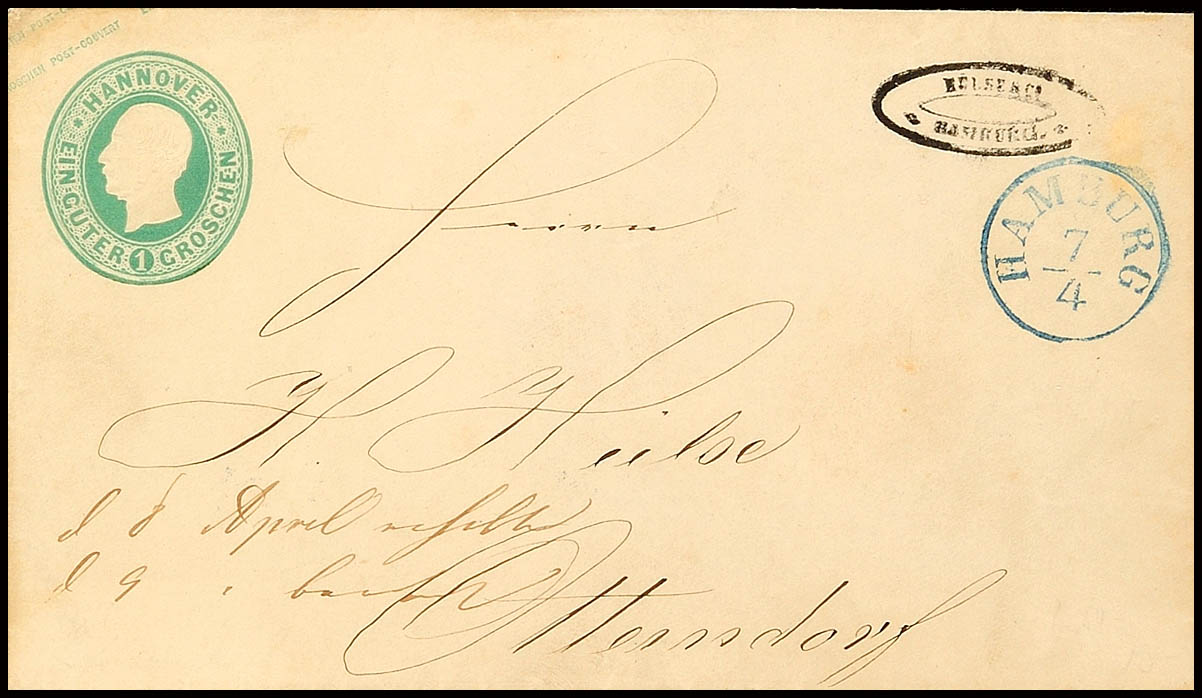 POST-COUVERT
OSCHEN POST-COUVERT
* HANNOVER *
EIN GUTER 1 GROSCHEN
HÜLSE & Co.
HAMBURG.
HAMBURG
7
4
Herrn
H. Hülse
d 8 April erhalten
d 9 " beantw
Otterndorf